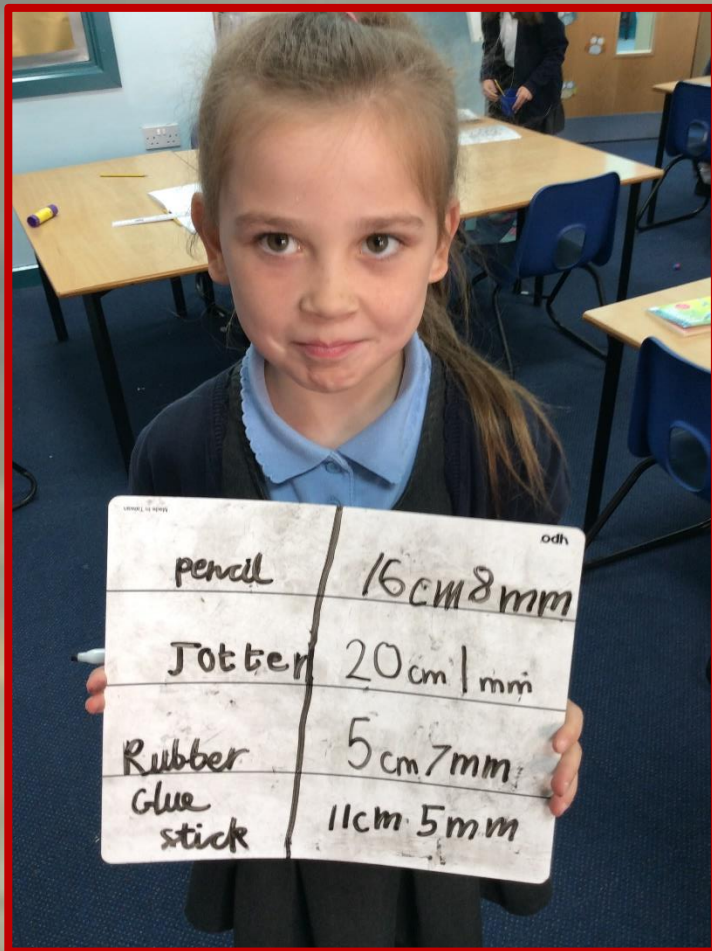 Made in Taiwan
odh
pencil 16cm 8mm
Jotter 20cm 1mm
Rubber 5cm 7mm
Glue
stick 11cm 5mm